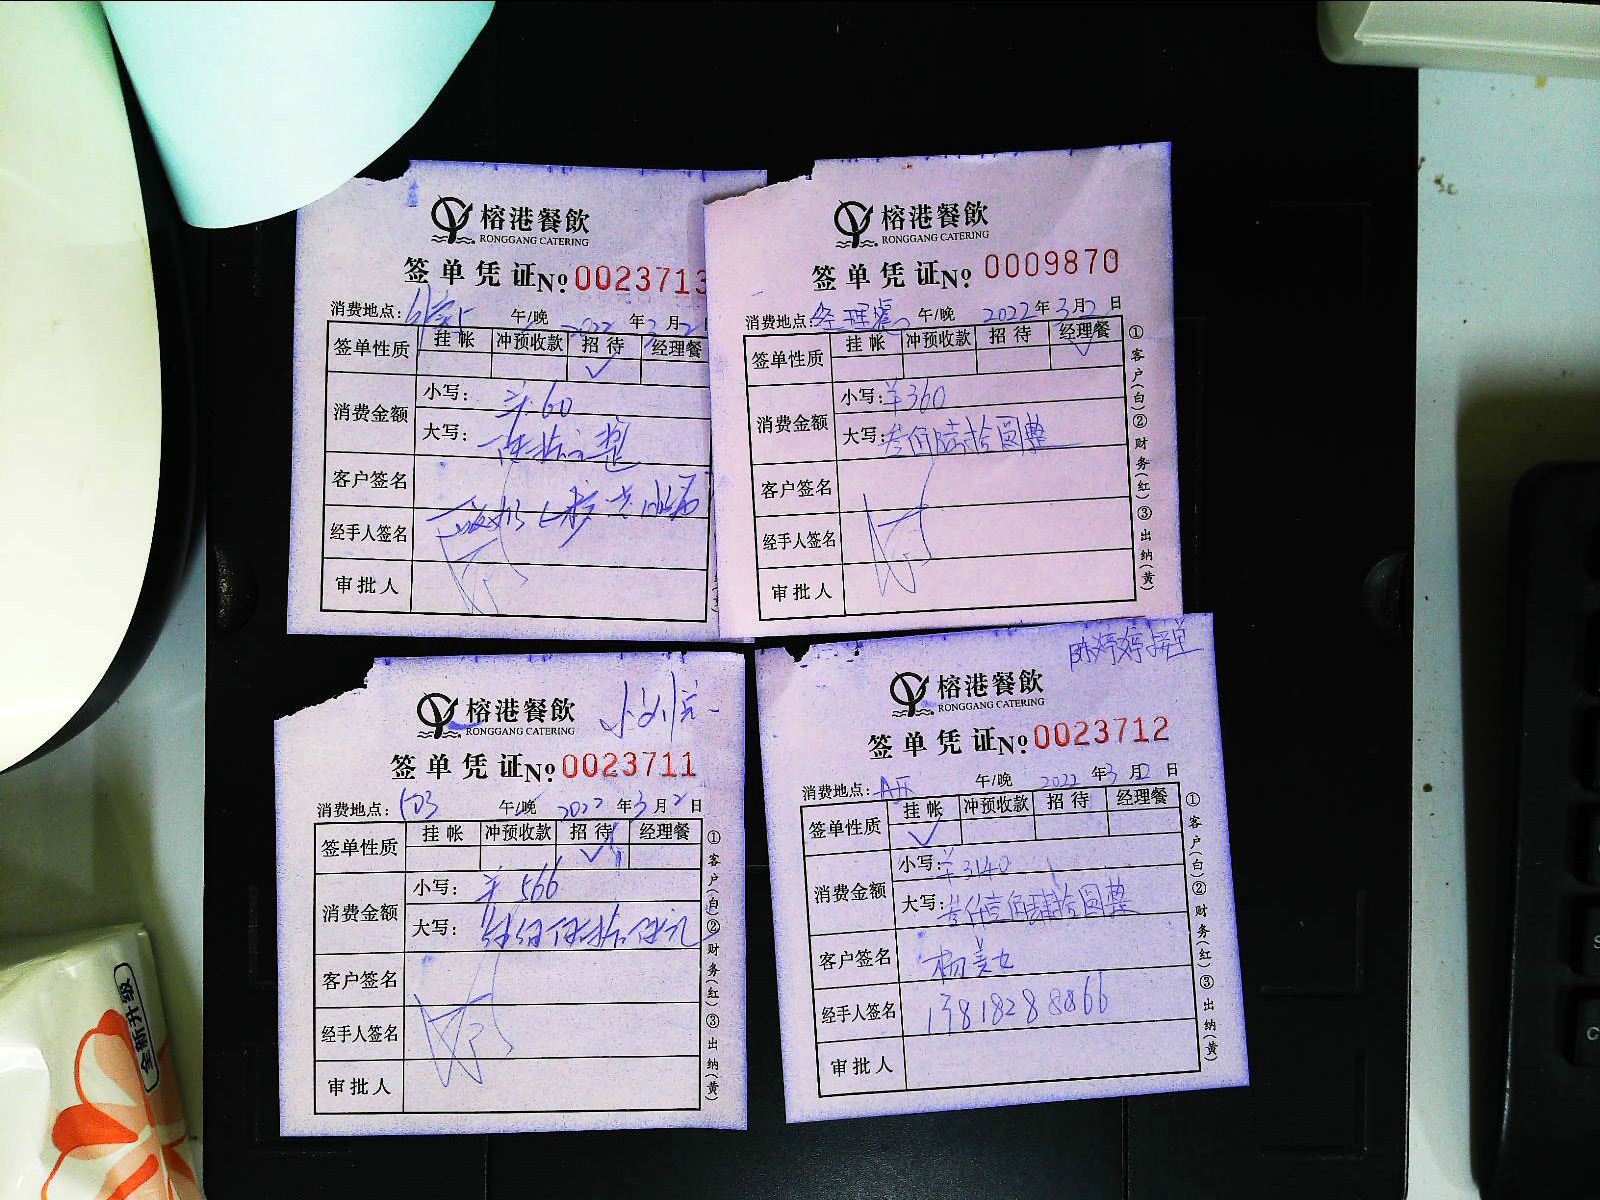 榕港餐飲
RONGGANG CATERING
签单凭证 No 0023713
消费地点: 午/晚 2022年3月2日
签单性质 挂帐 冲预收款 招待 经理餐
✓
消费金额 小写: ¥60
大写: 陆拾元整
客户签名
经手人签名
审批人
榕港餐飲
RONGGANG CATERING
签单凭证 No 0009870
消费地点:经理餐 午/晚 2022年3月2日
签单性质 挂帐 冲预收款 招待 经理餐
✓
消费金额 小写:¥360
大写:叁佰陆拾圆整
客户签名
经手人签名
审批人
①客户(白)②财务(红)③出纳(黄)
榕港餐飲
RONGGANG CATERING
签单凭证 No 0023711
消费地点: 503 午/晚 2022年3月2日
签单性质 挂帐 冲预收款 招待 经理餐
✓
消费金额 小写: ¥566
大写: 伍佰陆拾陆元
客户签名
经手人签名
审批人
①客户(白)②财务(红)③出纳(黄)
陈婷婷接单
榕港餐飲
RONGGANG CATERING
签单凭证 No 0023712
消费地点: 午/晚 2022年3月2日
签单性质 挂帐 冲预收款 招待 经理餐
✓
消费金额 小写:¥3140
大写:叁仟壹佰肆拾圆整
客户签名 杨美女
经手人签名 13818288866
审批人
①客户(白)②财务(红)③出纳(黄)
全新升级